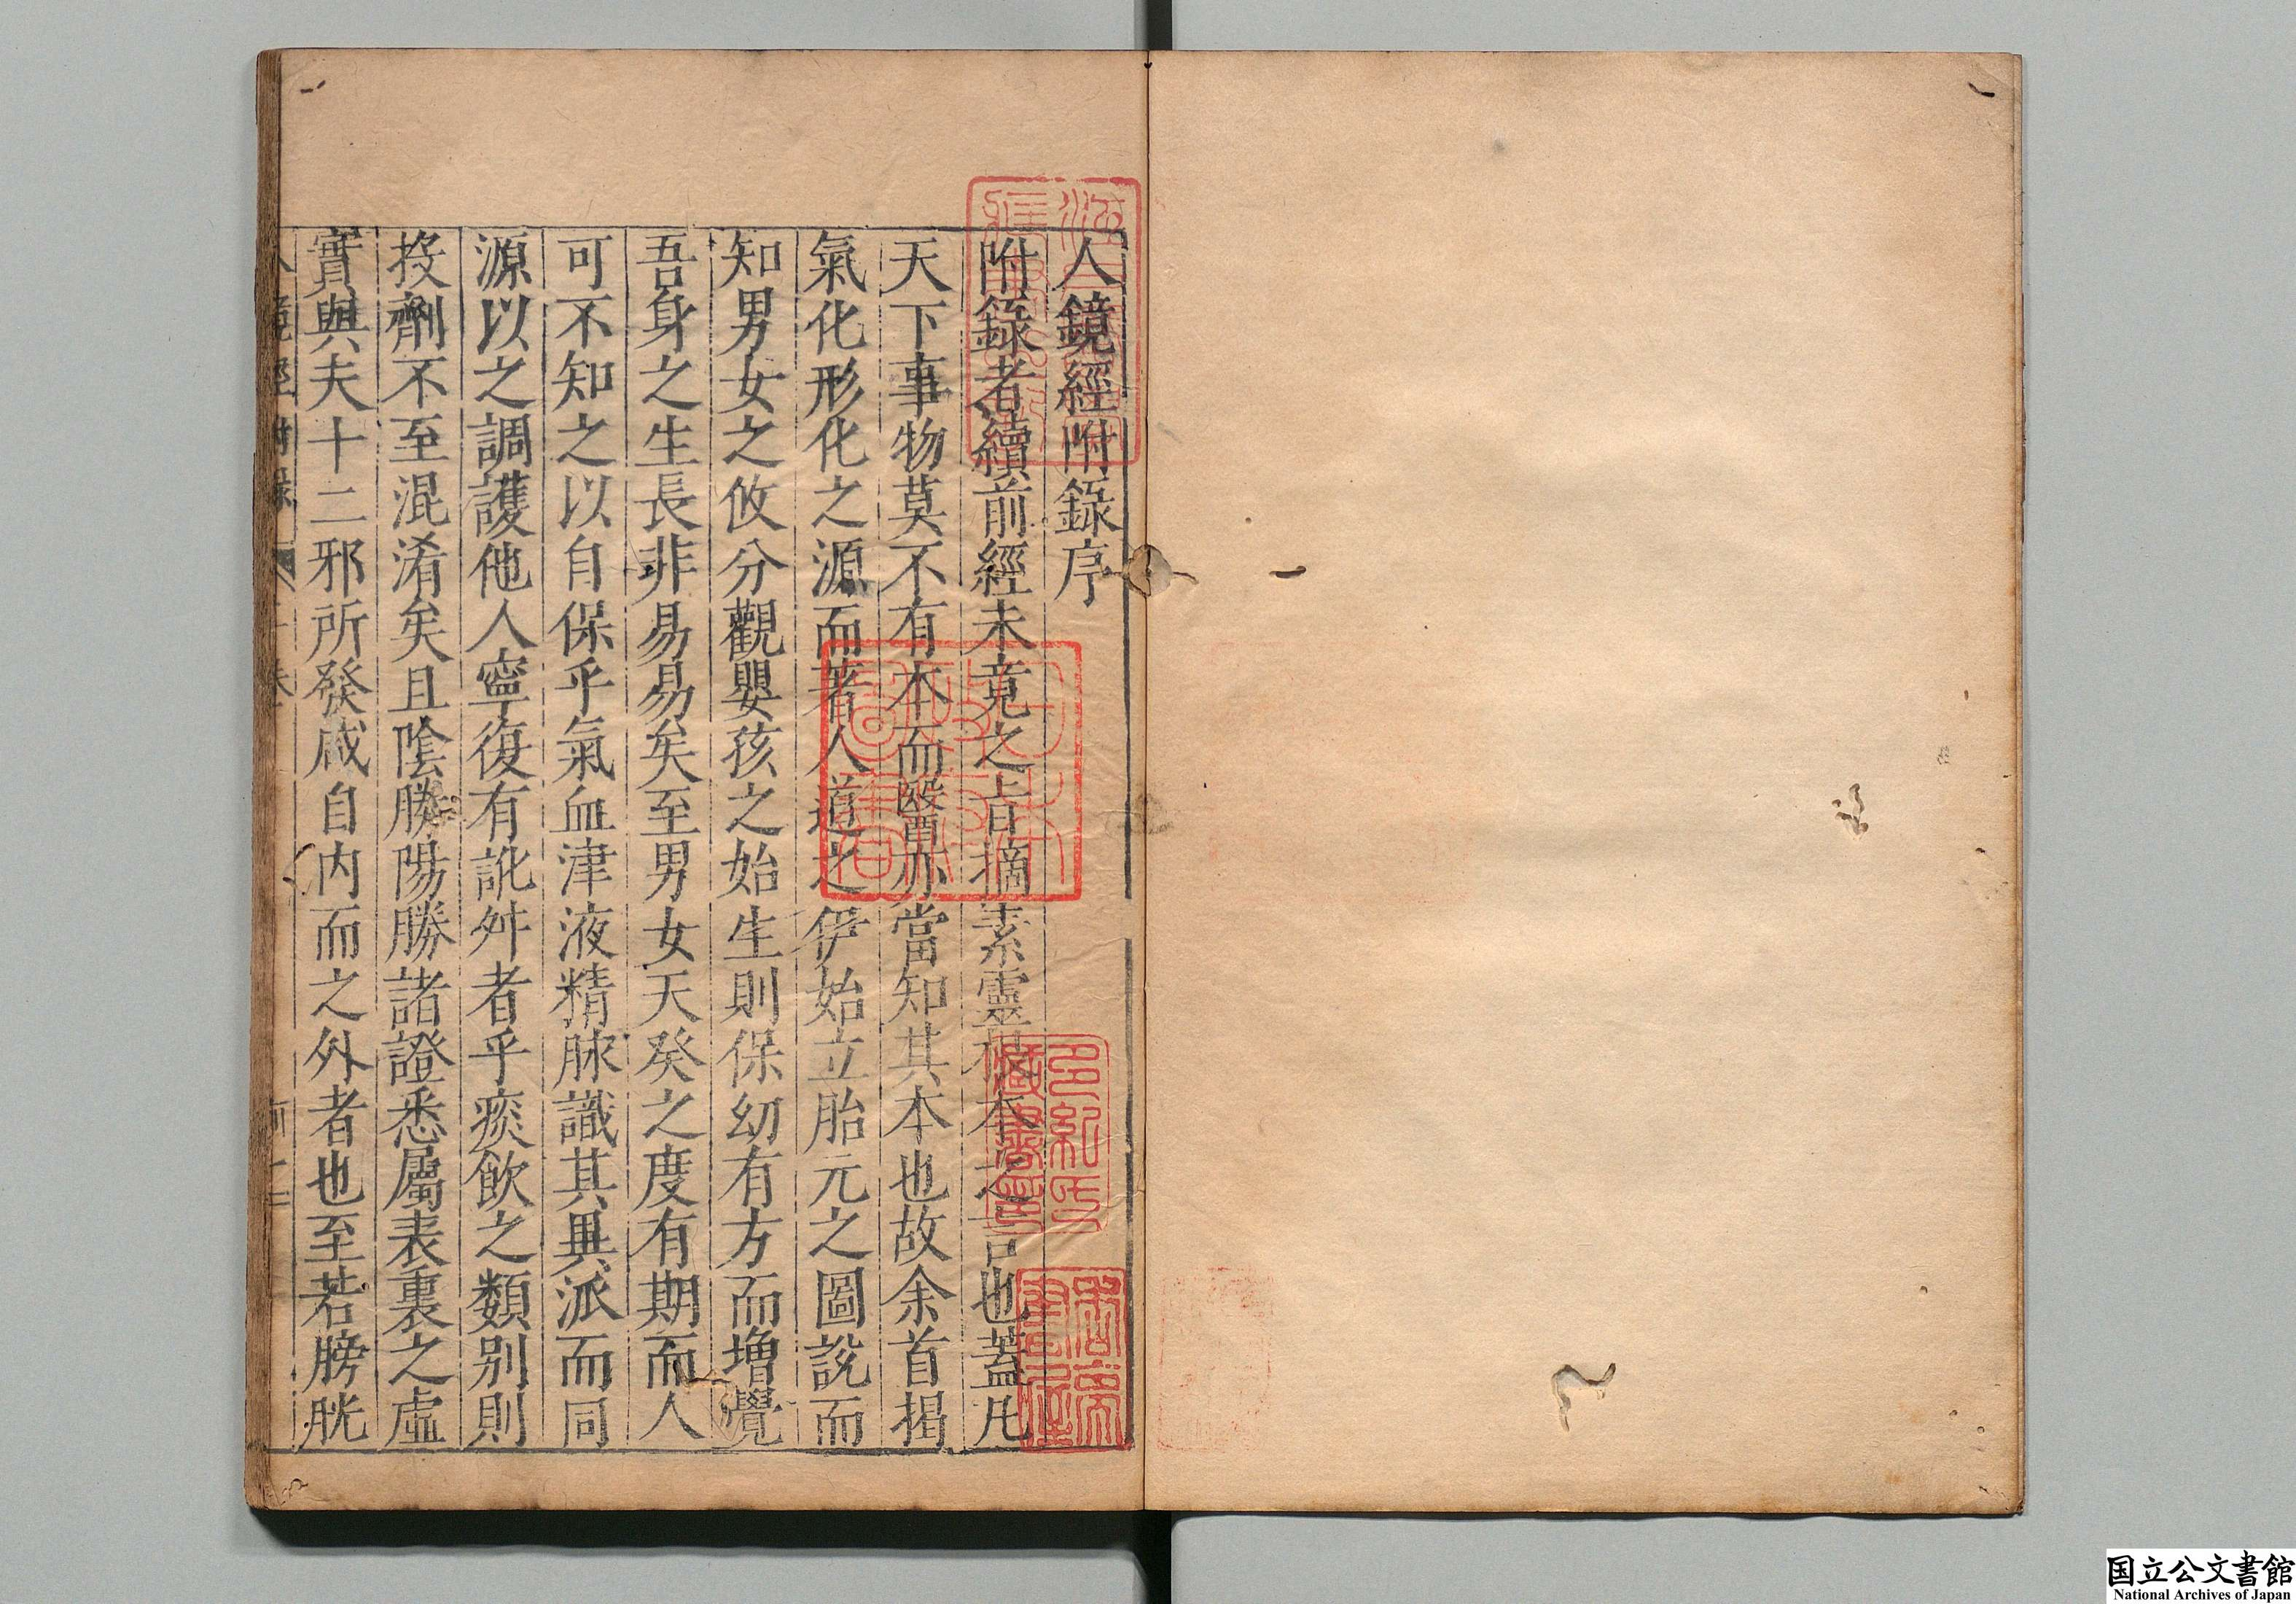 人鏡經附錄序
附錄者續前經未竟之旨摘素靈根本之言也蓋凡
天下事物莫不有本而醫亦當知其本也故余首揭
氣化形化之源而著人道之伊始立胎元之圖說而
知男女之攸分觀嬰孩之始生則保幼有方而增覺
吾身之生長非易易矣至男女天癸之度有期而人
可不知之以自保乎氣血津液精脉識其異派而同
源以之調護他人寧復有訛舛者乎痰飲之類別則
投劑不至混淆矣且陰勝陽勝諸證悉屬表裏之虛
實與夫十二邪所發咸自内而之外者也至若膀胱
人鏡經附錄
多紀氏
藏書印
国立公文書館
National Archives of Japan